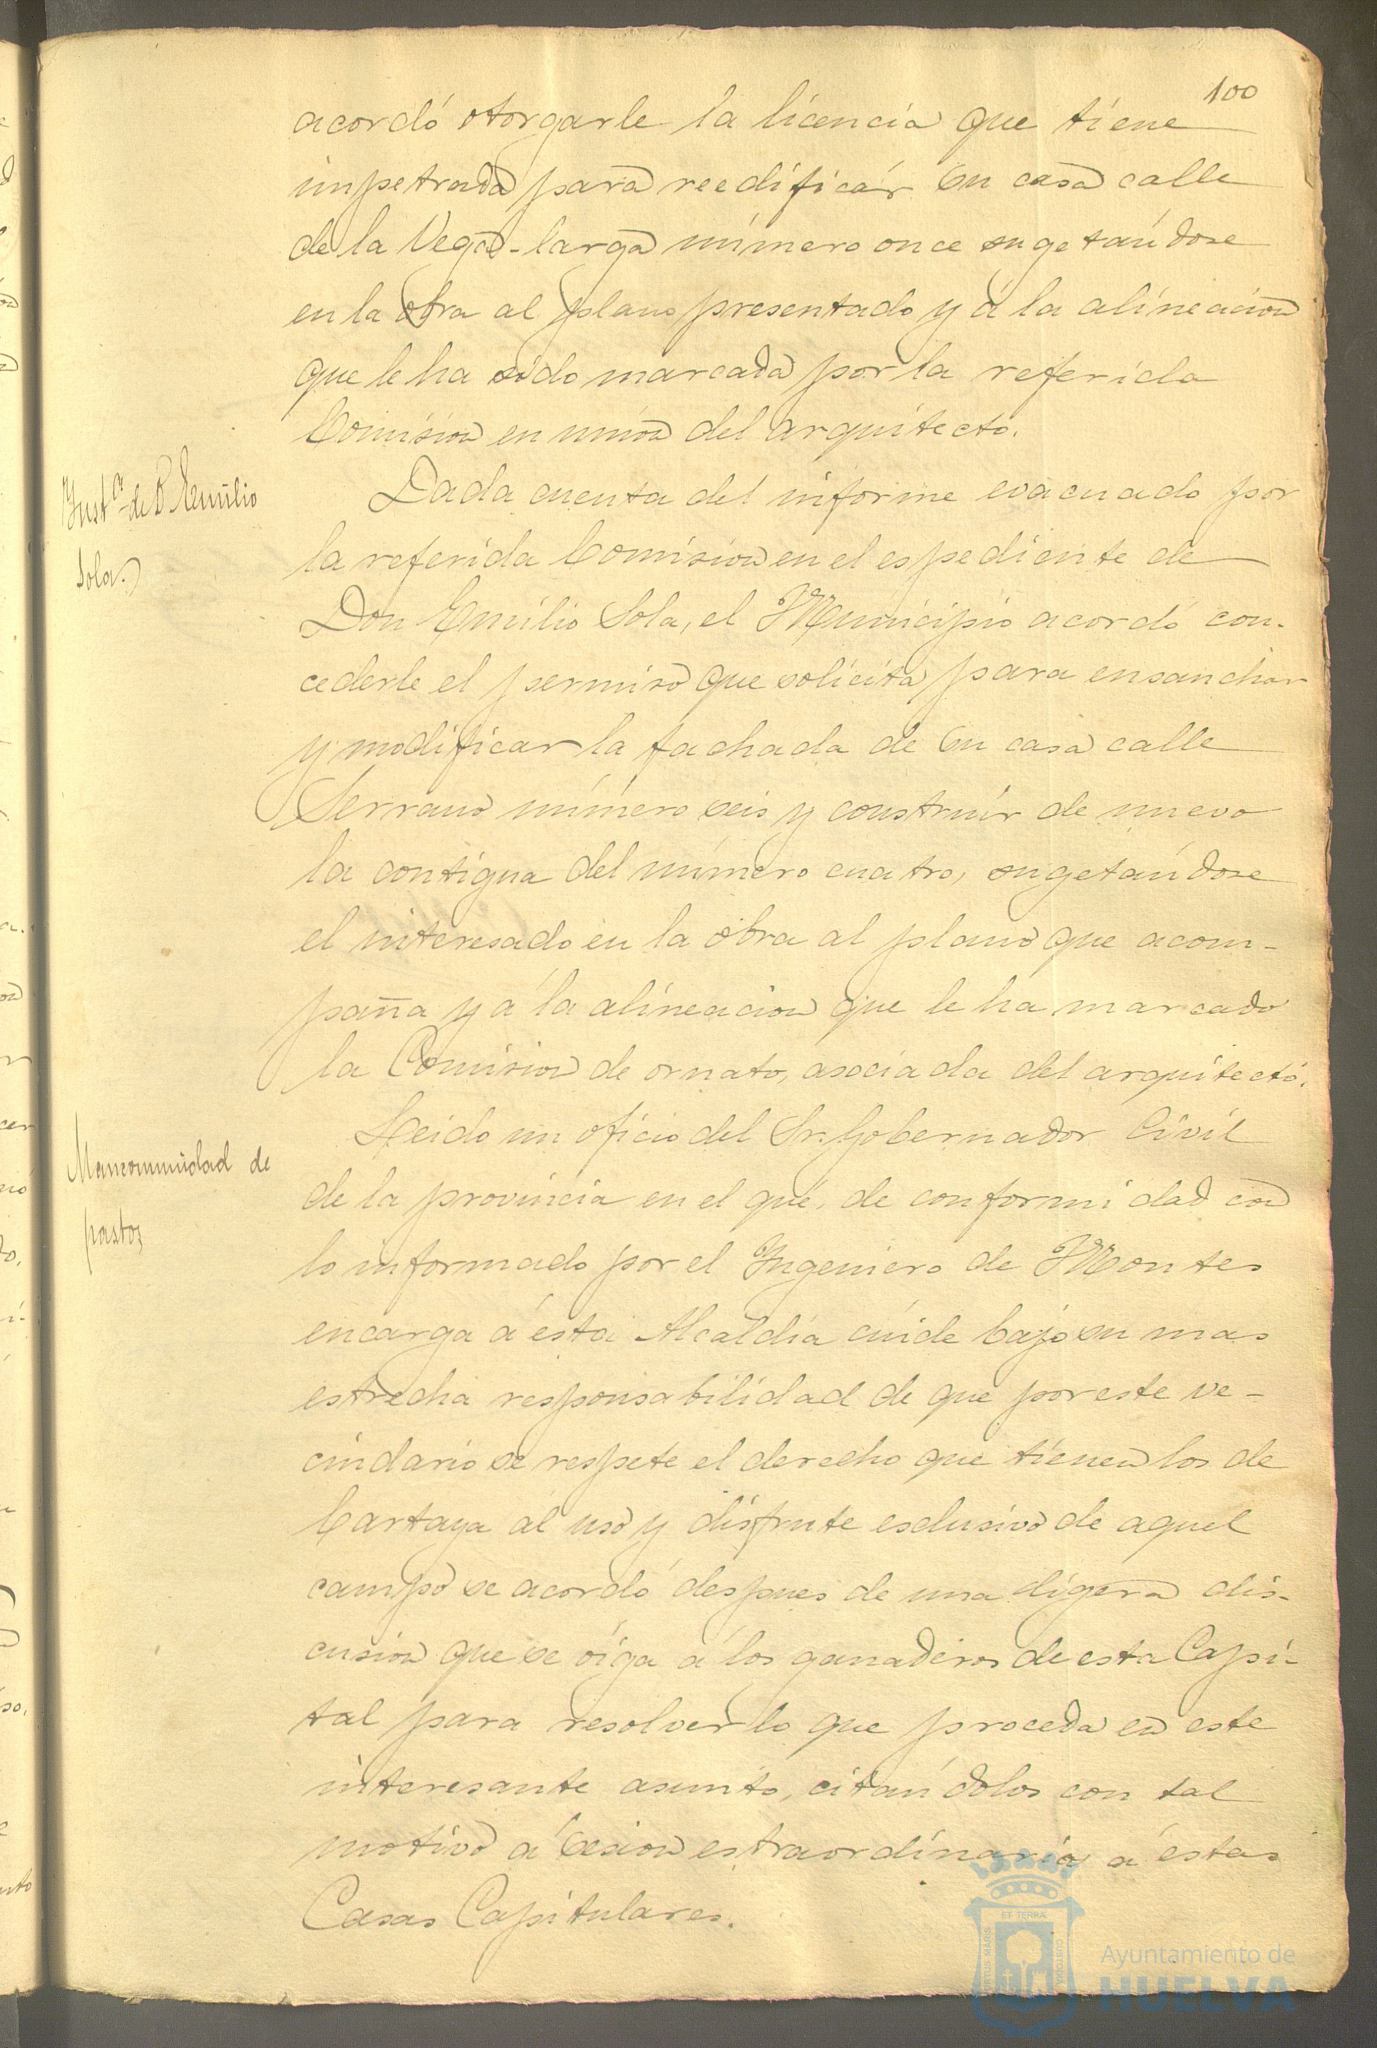 100
acordó otorgarle la licencia que tiene
impetrada para reedificar su casa calle
de la Vega-larga número once sugetándose
en la obra al plano presentado y á la alineacion
que le ha sido marcada por la referida
Comision en union del arquitecto.
Inst.ª de D. Emilio
Sola.
Dada cuenta del informe evacuado por
la referida Comision en el espediente de
Don Emilio Sola, el Municipio acordó con-
cederle el permiso que solicita para ensanchar
y modificar la fachada de su casa calle
Serrano número seis y construir de nuevo
la contigua del número cuatro, sugetándose
el interesado en la obra al plano que acom-
paña y á la alineacion que le ha marcado
la Comision de ornato, asociada del arquitecto.
Mancomunidad de
pastos
Leido un oficio del Sr. Gobernador Civil
de la provincia en el que, de conformidad con
lo informado por el Ingeniero de Montes
encarga á esta Alcaldía cuide bajo su mas
estrecha responsabilidad de que por este ve-
cindario se respete el derecho que tienen los de
Cartaya al uso y disfrute esclusivo de aquel
campo se acordó despues de una ligera dis-
cusion que se oiga á los ganaderos de esta Capi-
tal para resolver lo que proceda en este
interesante asunto, citándolos con tal
motivo á sesion estraordinaria á estas
Casas Capitulares.
ET TERRA
PORTUS MARIS
CUSTODIA
Ayuntamiento de
HUELVA